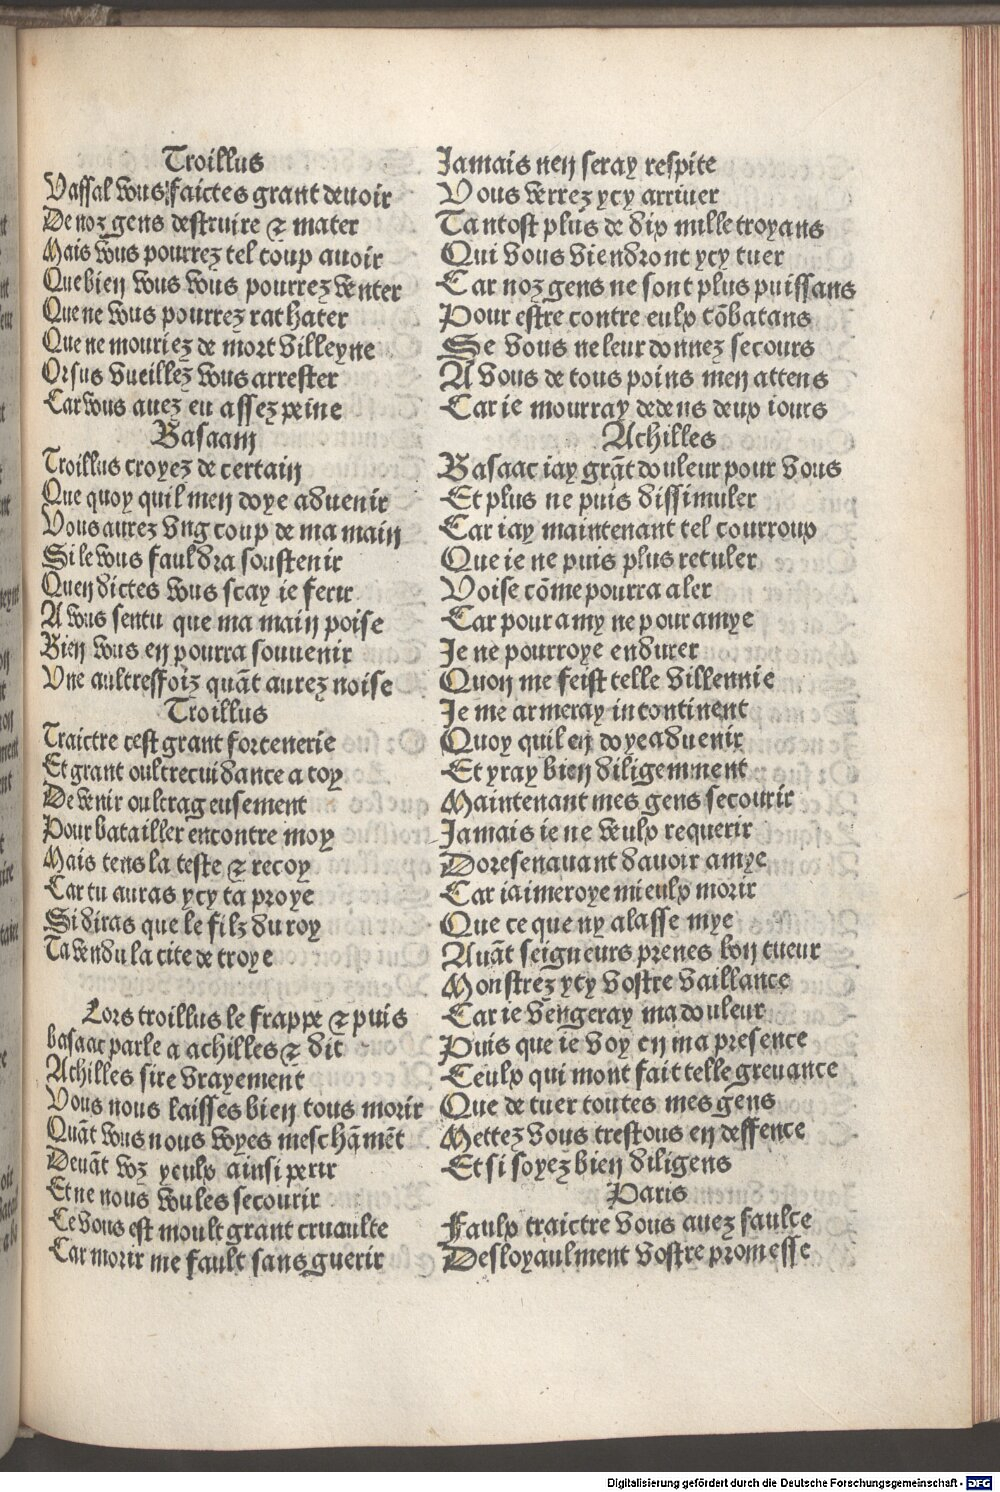 Troillus
Vassal vous faictes grant deuoir
De noz gens destruire & mater
Mais vous pourrez tel coup auoir
Que bien vous vous pourrez venter
Que ne vous pourrez rachater
Que ne mouriez de mort villeyne
Orsus vueillez vous arrester
Car vous auez eu assez peine
Basaam
Troillus croyez de certain
Que quoy quil men doye aduenir
Vous aurez vng coup de ma main
Si le vous fauldra soustenir
Quen dictes vous scay ie ferir
A vous sentu que ma main poise
Bien vous en pourra souuenir
Vne aultreffoiz quāt aurez noise
Troillus
Traictre cest grant forcenerie
Et grant oultrecuidance a toy
De venir oultrageusement
Pour batailler encontre moy
Mais tens la teste & recoy
Car tu auras ycy ta proye
Si diras que le filz du roy
Ta vendu la cite de troye
Lors troillus le frappe & puis
basaac parle a achilles & dit
Achilles sire vrayement
Vous nous laisses bien tous morir
Quāt vous nous voyes meschāmēt
Deuāt voz yeulx ainsi perir
Et ne nous voules secourir
Ce vous est moult grant cruaulte
Car morir me fault sans guerir
Jamais nen seray respite
Vous verrez ycy arriuer
Tantost plus de dix mille troyans
Qui vous viendront ycy tuer
Car noz gens ne sont plus puissans
Pour estre contre eulx cōbatans
Se vous ne leur donnez secours
A vous de tous poins men attens
Car ie mourray dedens deux iours
Achilles
Basaac iay grāt douleur pour vous
Et plus ne puis dissimuler
Car iay maintenant tel courroux
Que ie ne puis plus reculer
Voise cōme pourra aler
Car pour amy ne pour amye
Je ne pourroye endurer
Quon me feist telle villennie
Je me armeray incontinent
Quoy quil en doye aduenir
Et yray bien diligemment
Maintenant mes gens secourir
Jamais ie ne veulx requerir
Doresenauant dauoir amye
Car iaimeroye mieulx morir
Que ce que ny alasse mye
Auāt seigneurs prenes bon cueur
Monstrez ycy vostre vaillance
Car ie vengeray ma douleur
Puis que ie voy en ma presence
Ceulx qui mont fait telle greuance
Que de tuer toutes mes gens
Mettez vous trestous en deffence
Et si soyez bien diligens
Paris
Faulx traictre vous auez faulce
Desloyaulment vostre promesse
Digitalisierung gefördert durch die Deutsche Forschungsgemeinschaft - DFG